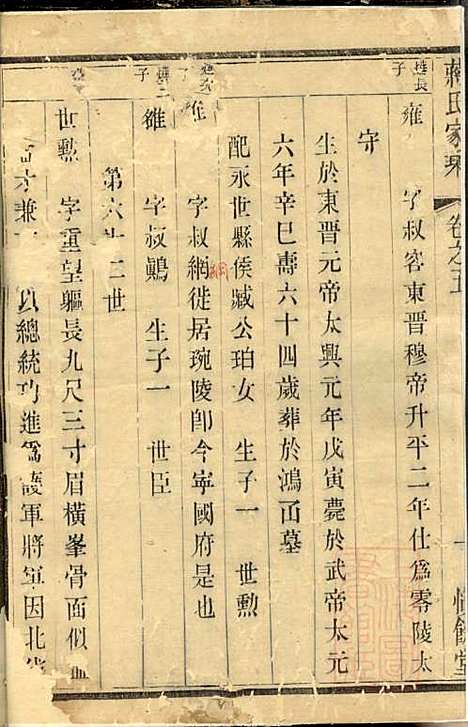 蔣氏家乘
卷之五
雍 字叔容東晉穆帝升平二年仕爲零陵太
守
生於東晉元帝太興元年戊寅薨於武帝太元
六年辛巳壽六十四歲葬於鴻
墓
配永世縣侯臧公珀女 生子一 世勲
字叔網徙居琬陵卽今寧國府是也
綱
雒 字叔鷏 生子一 世臣
第六十二世
世勲 字重望軀長九尺三寸眉橫峯骨面似
才兼
以總統功進爲護軍將軍因北